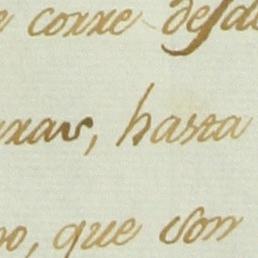 e corre desde
uxar, hasta
po, que son